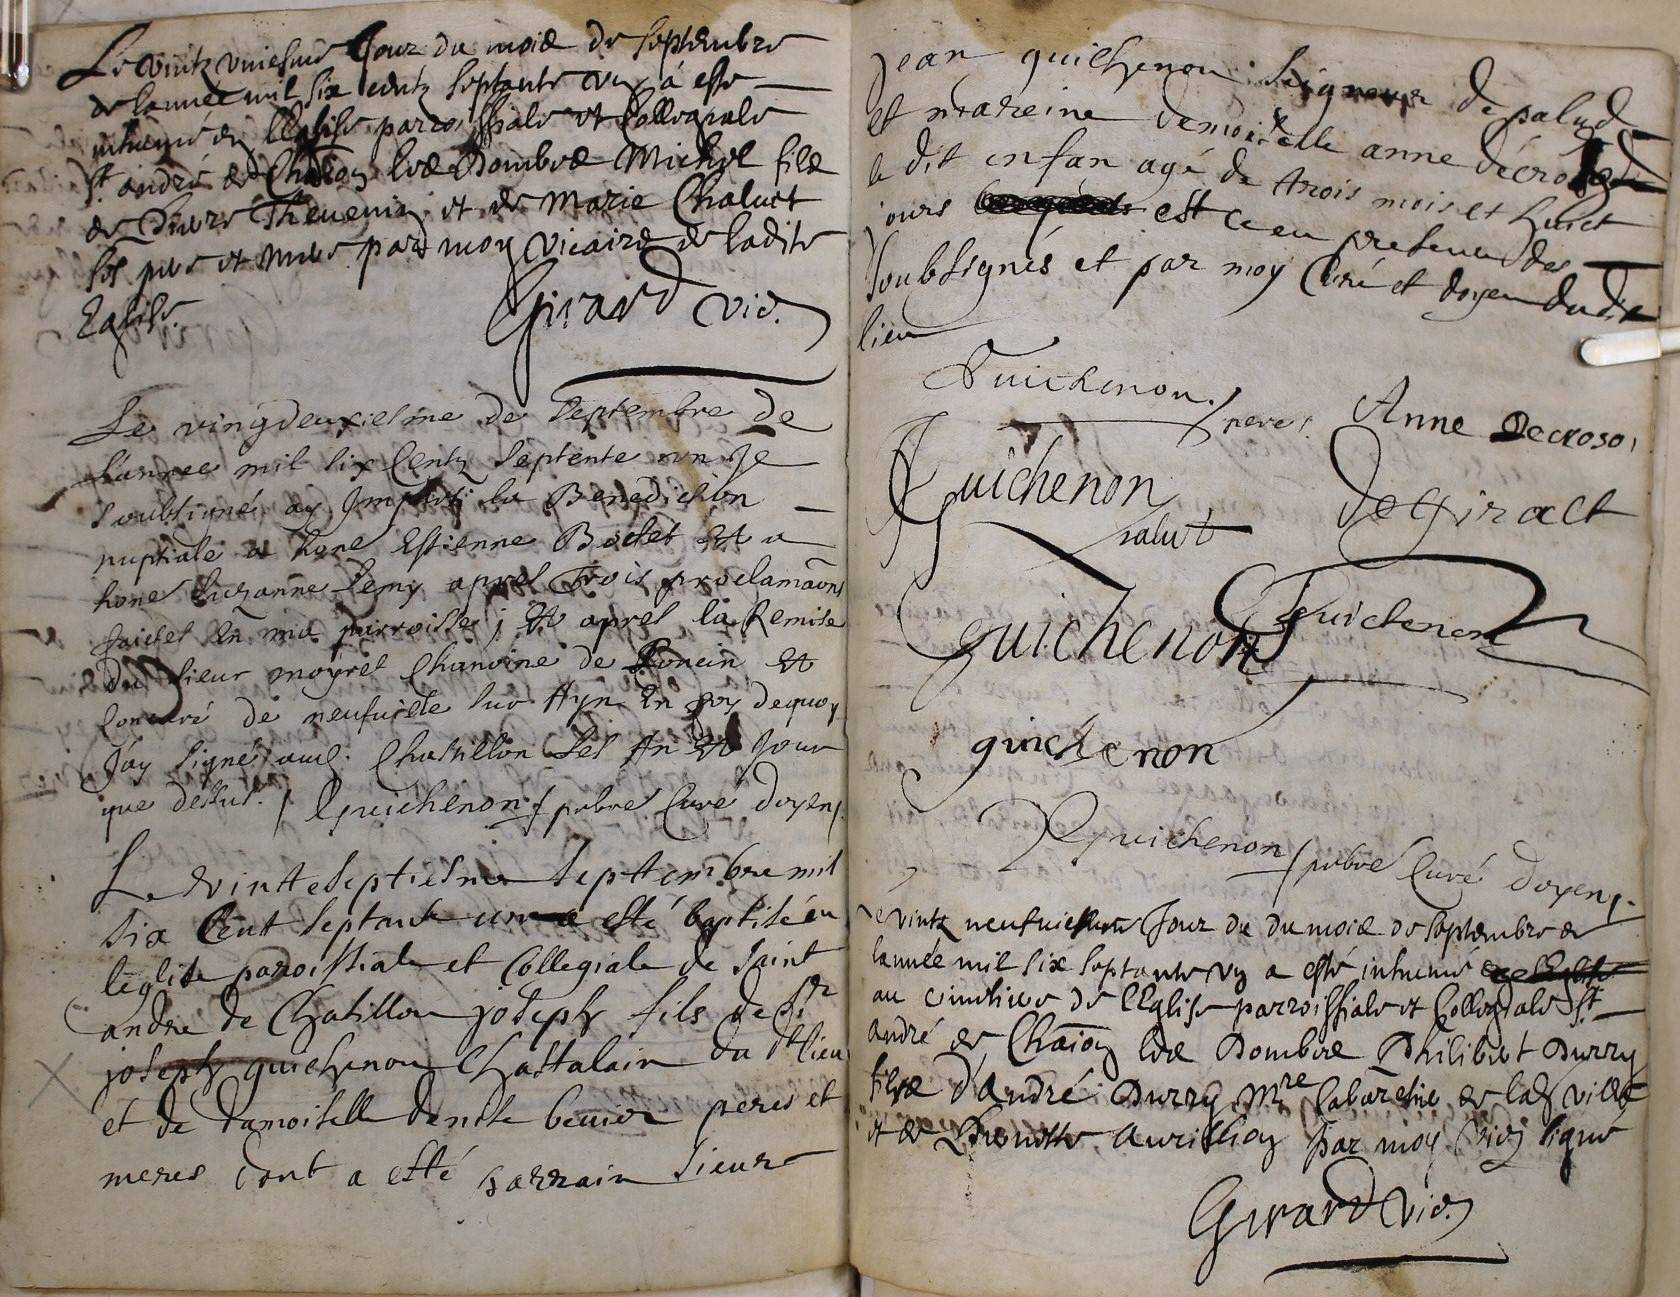 Le vintz uniesme Jour du mois de Septembre
de lannee mil six centz septante un à esté
inhumé en l'Eglise parroissiale et Collegiale
St andré de Chaōn les Dombes Michel filz
de Pierre Thevenin et de Marie Chaluet
ses pere et mere par moy vicaire de ladite
Eglise.
Girard vic.
Le vingdeuxiesme de Septembre de
L'annee mil six Centz Septente un Je
soubsigné ay Imparti la Benediction
nuptiale a hone Estienne Bochet Et a
hone Suzanne Lemy apres Trois proclamaōns
faictes en ma parroisse; Et apres la Remise
du sieur moyret Chanoine de Poncin Et
Concuré de neufuille sur Ayn En foy dequoy
J'ay signé aud. Chastillon Les An Et Jour
que dessus. / Guichenon pbre Curé doyen
Le vintte septiesme Septtembre mil
six Cent septante un a esté baptisé en
leglise paroissiale et Collegiale de Saint
andre de Chatillon joseph fils de Sr
joseph guichenon Chattalain du dt lieu
et de damoiselle denise beuier peres et
meres dont a esté parrain Sieurs
jean guichenon Seigneur de palud
et mareine demoiselle anne décroso
le dit enfan agé de trois mois et huict
jours est ce en presence des
soubsignés et par moy Curé et doyen du dit
lieu
Guichenon pere.
Anne Decroso,
Guichenon
palut
De Giract
Guichenon
Guichenon
guichenon
Guichenon pbre Curé doyen
Le vintz neufuiesme Jour du du mois de Septembre de
lannée mil six septante un a esté inhumé
au cimetiere de l'Eglise parroissiale et Collegiale St
andré de Chaōn les Dombes Philibert Durry
filz d'André Durry Mre Cabaretie de lad ville
et de par moy vic signé
Girard vic.